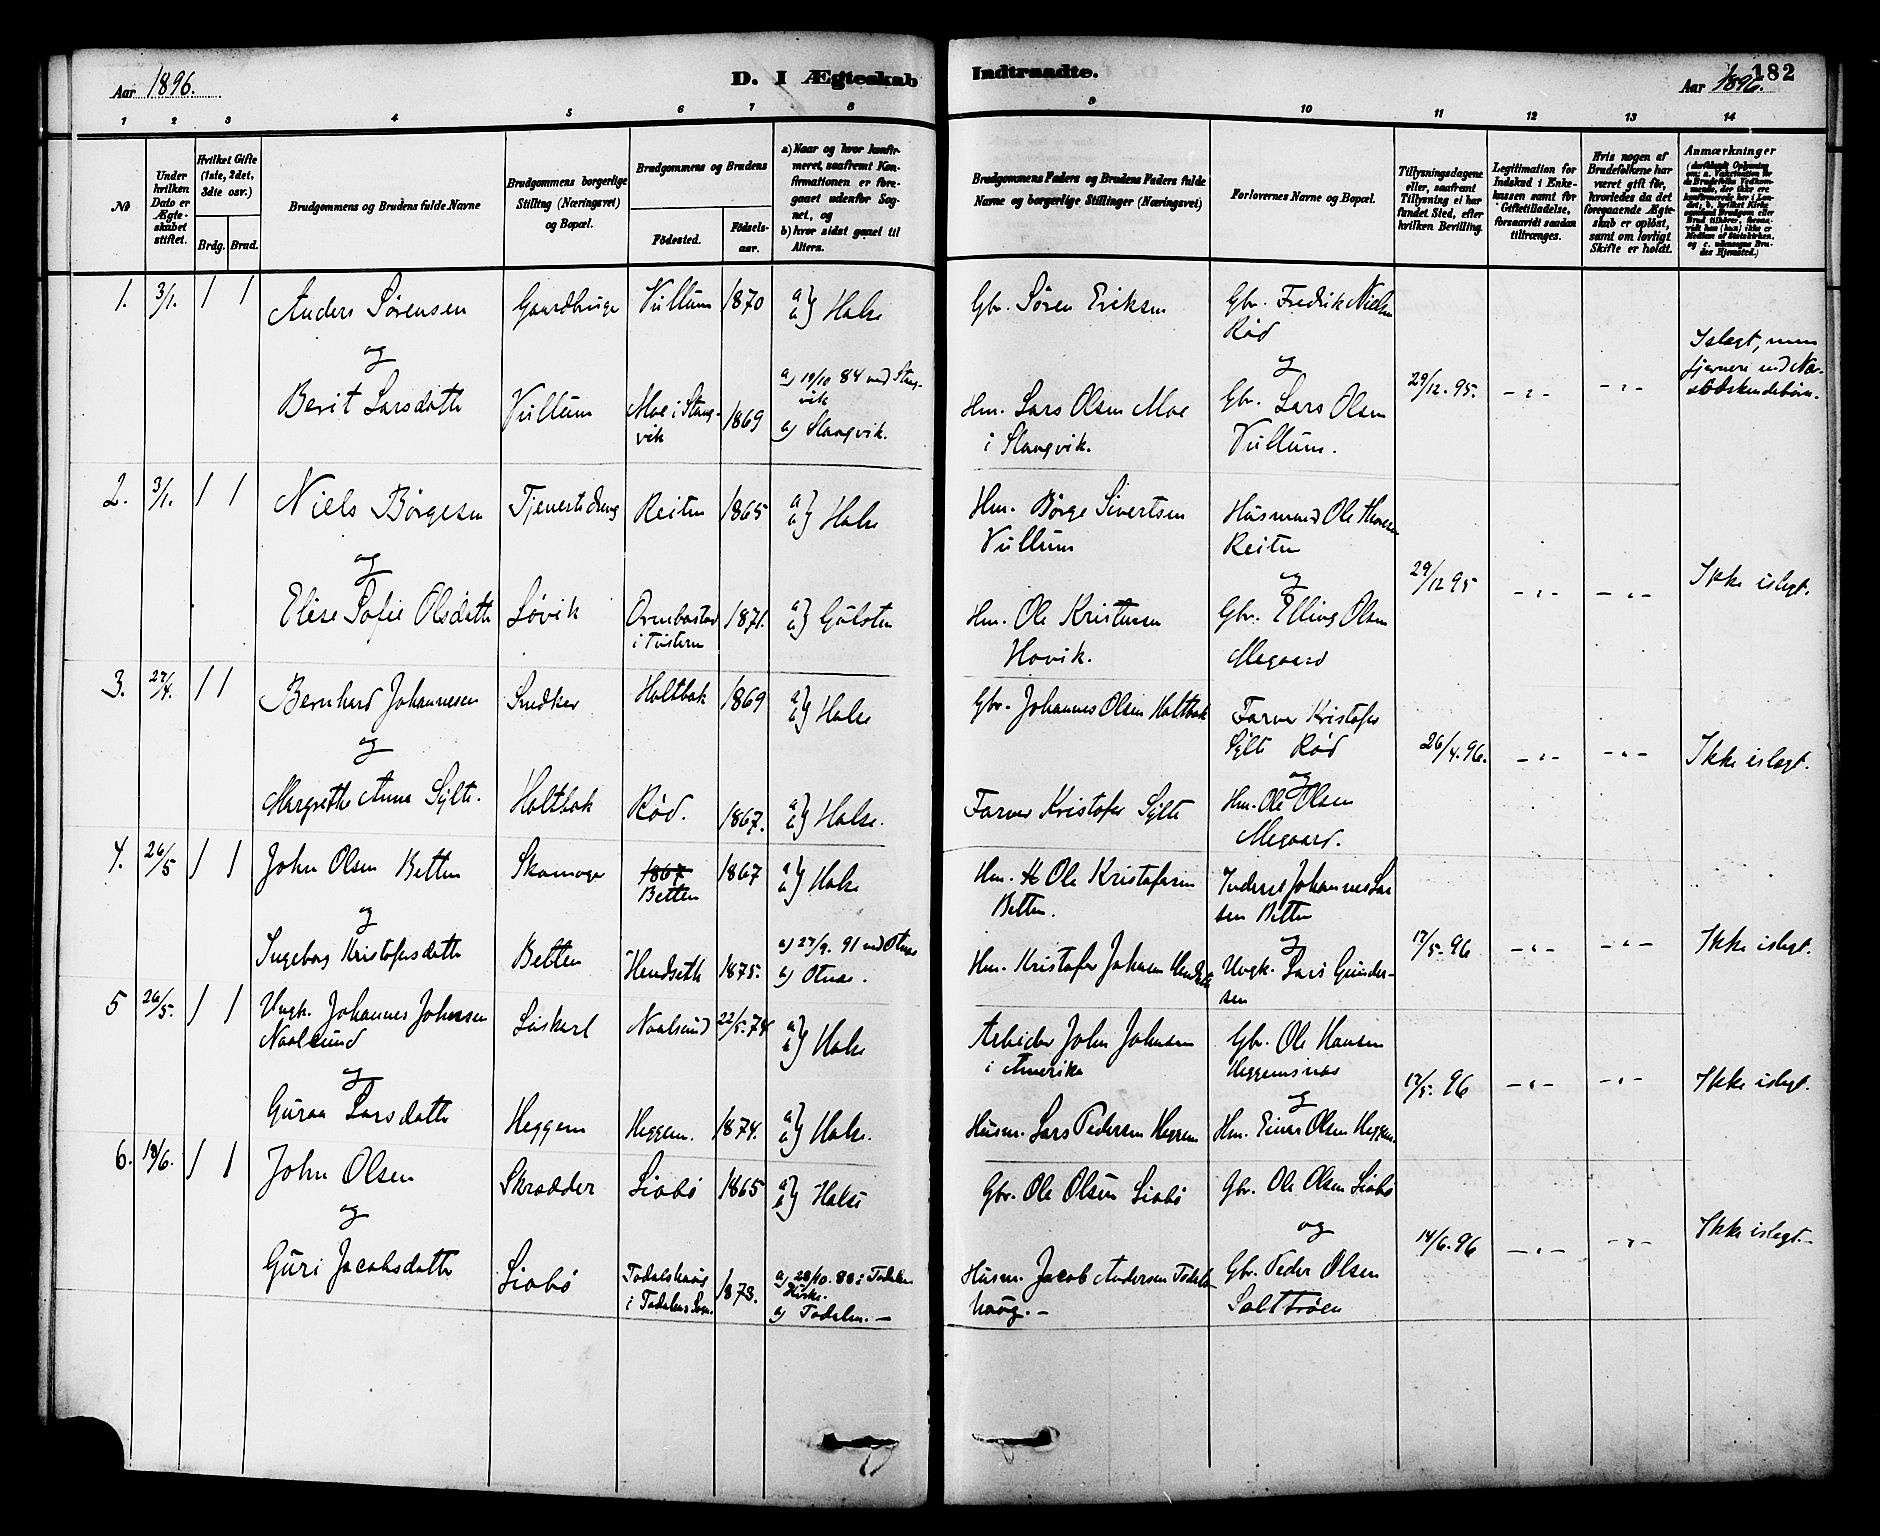 Aar 1896.
D. I Ægteskab
Indtraadte.
182
Aar 1896.
1 2 3 4 5 6 7 8 9 10 11 12 13 14
No
Under hvilken Dato er Ægteskabet stiftet.
Hvilket Gifte (1ste, 2det, 3die osv.)
Brdg. Brud.
Brudgommens og Brudens fulde Navne
Brudgommens borgerlige Stilling (Næringsvei) og Bopæl.
Brudgommens og Brudens
Fødested.
Fødselsaar.
a) Naar og hvor konfirmeret, saafremt Konfirmationen er foregaaet udenfor Sognet, og
b) hvor sidst gaaet til Alters.
Brudgommens Faders og Brudens Faders fulde Navne og borgerlige Stillinger (Næringsvei)
Forlovernes Navne og Bopæl.
Tillysningsdagene eller, saafremt Tillysning ei har fundet Sted, efter hvilken Bevilling.
Legitimation for Indskud i Enkekassen samt for Giftetilladelse, forsaavidt saadan tiltrænges.
Hvis nogen af Brudefolkene har været gift før, hvorledes da det foregaaende Ægteskab er opløst, samt om lovligt Skifte er holdt.
Anmærkninger
1. 3/1. 1 1 Anders Sørensen Gaardbruger Vullum 1870 a) b) Halse Gbr. Søren Eriksen Gbr. Fredrik Nielsen
Rød
og og
Berit Larsdatter Vullum Moe i Stangvik 1869 a) 19/10 84 ved Stangvik
a) Stangvik. Hm. Lars Olsen Moe
i Stangvik. Gbr. Lars Olsen
Vullum. 29/12. 95. -"- -"- I slægt, men
fjernere end Næstsødskendebørn.
2. 3/1. 1 1 Niels Børgesen Tjenestedreng Reiten 1865 a) b) Halse Hm. Børge Sivertsen
Vullum Husmand Ole Thoresen
Reiten
og og
Elise Sofie Olsdatter Løvik Ormbostad
i Tustern 1871. a) b) Gulsten Hm. Ole Kristensen
Hovik. Gbr. Elling Olsen
Megaard 29/12 95 -"- -"- Ikke i slegt.
3. 27/4. 1 1 Bernhard Johannesen Snedker Holtbak 1869 a) b) Halse Gbr. Johannes Olsen Holtbak Farver Kristofer
Sylte Rød
og og
Margrethe Anna Sylte. Holtbak Rød. 1867. a) b) Halse. Farver Kristofer Sylte Hm. Ole Olsen
Megaard. 26/4. 96. -"- -"- Ikke i slegt.
4. 26/5 1 1 John Olsen Betten Skomager 1867
Betten 1867 a) b) Halse Hm. Ole Kristofersen
Betten. Inderst Johannes Larsen Betten
og og
Ingeborg Kristofersdatter Betten Hendseth 1875. a) 27/9. 91 ved Otnes
a) Otnes. Hm. Kristofer Johnsen Hendseth Ungk. Lars Gundersen 17/5. 96 -"- -"- Ikke i slegt.
5 26/5. 1 1 Ungk. Johannes Johnsen
Naalsund Løskarl Naalsund 22/5. 74 a) b) Halse Arbeider John Johnsen
i Amerika Gbr. Ole Hansen
Heggemsnes
og og
Guraa Larsdatter Heggem Heggem. 1874. a) b) Halse. Husm. Lars Pedersen Heggem Hm. Einer Olsen Heggem 17/5. 96 -"- -"- Ikke i slegt.
6. 19/6. 1 1 John Olsen Skrædder Liabø 1865 a) b) Halse Gbr. Ole Olsen Liabø Gbr. Ole Olsen Liabø
og og
Guri Jacobsdatter Liabø Todalshaug
i Todalens Sogn. 1873. a) 28/10. 88 i Todalen
Kirke.
a) Todalen. – Husm. Jacob Andersen Todalshaug. – Gbr. Peder Olsen
Salttrøen 14/6. 96 -"- -"- Ikke i slegt. –